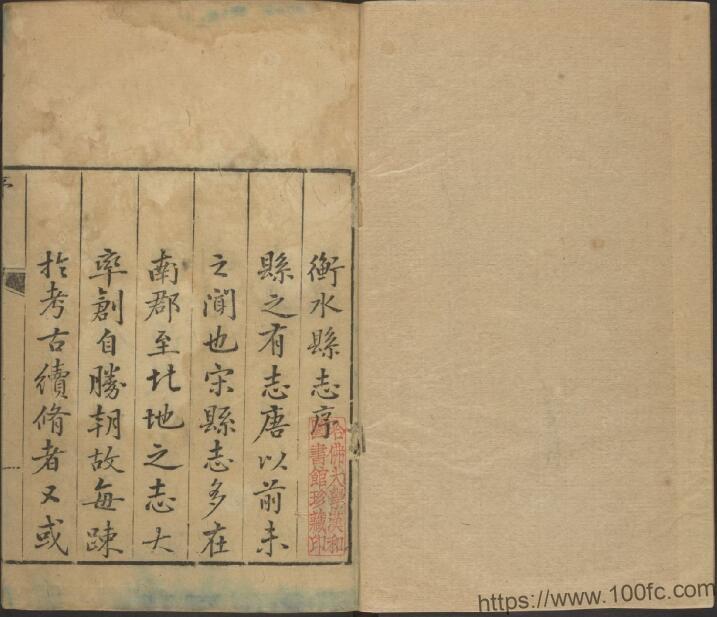 衡水縣志序
縣之有志唐以前未
之聞也宋縣志多在
南郡至北地之志大
率創自勝朝故每踈
於考古續脩者又或
哈佛大學漢和
圖書館珍藏印
https://www.100fc.com